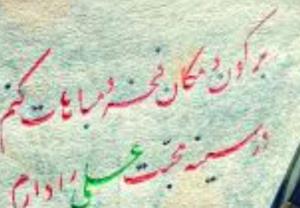 بر کون و مکان فخر و مباهات کنم
در سینه محبت علی را دارم